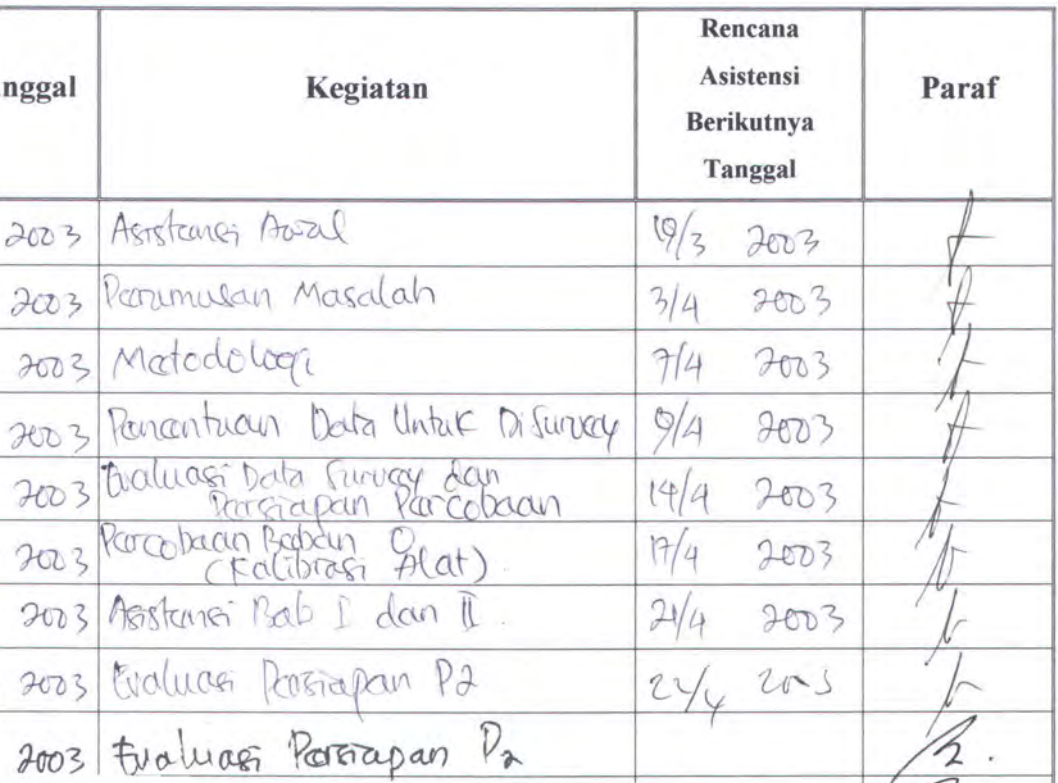 nggal Kegiatan Rencana Asistensi Berikutnya Tanggal Paraf
2003 Asistensi Awal 19/3 2003
2003 Perumusan Masalah 3/4 2003
2003 Metodologi 7/4 2003
2003 Penentuan Data Untuk Disurvey 9/4 2003
2003 Evaluasi Data Survey dan
Persiapan Percobaan 14/4 2003
2003 Percobaan Beban 0
(Kalibrasi Alat). 17/4 2003
2003 Asistensi Bab I dan II. 21/4 2003
2003 Evaluasi Persiapan P2 22/4 2003
2003 Evaluasi Persiapan P2